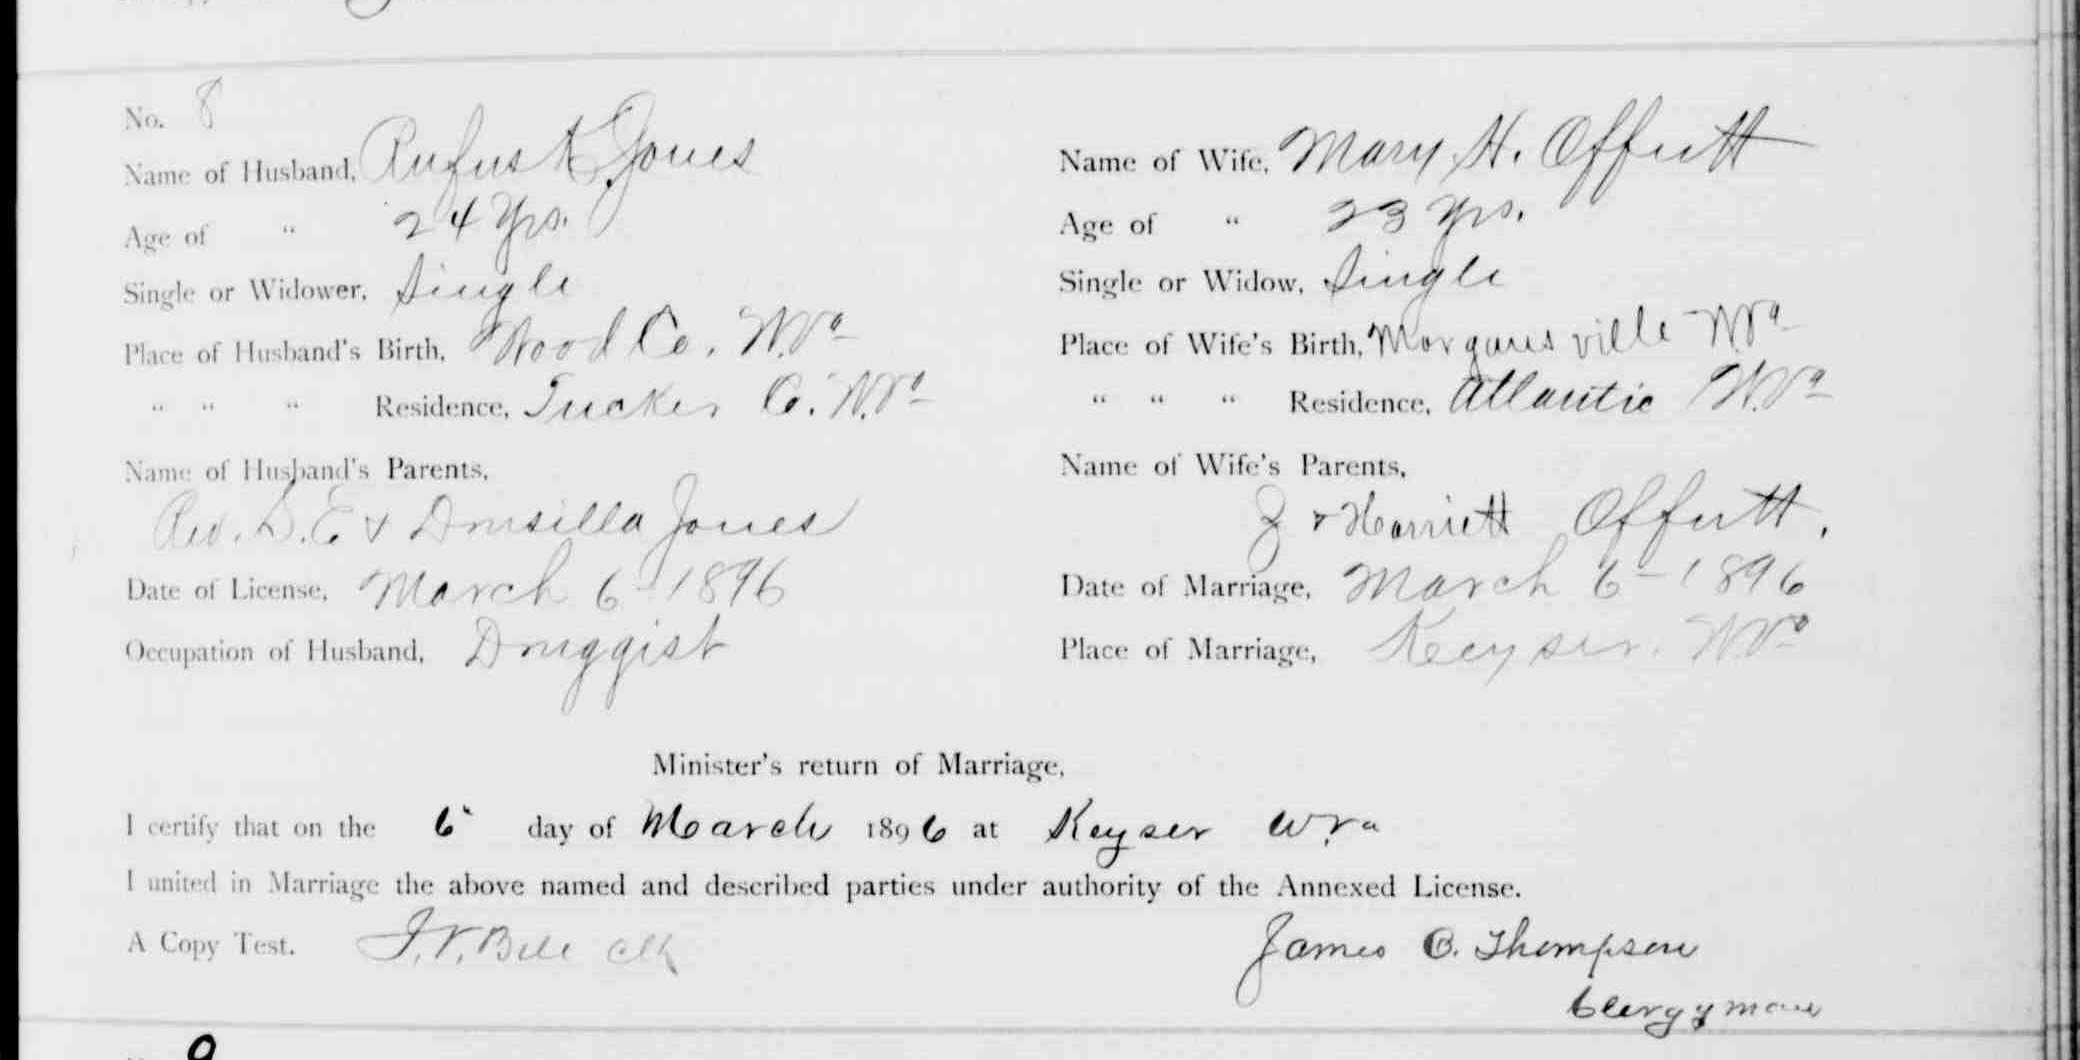 No. 8
Name of Husband, Rufus K Jones
Age of " 24 Yrs.
Single or Widower, Single
Place of Husband's Birth, Wood Co. W.Va
" " " Residence, Tucker Co. W.Va
Name of Husband's Parents,
Rev. D. E & Drusilla Jones
Date of License, March 6 - 1896
Occupation of Husband, Druggist
Name of Wife, Mary H. Offutt
Age of " 23 Yrs.
Single or Widow, Single
Place of Wife's Birth, Morgansville W.Va
" " " Residence, Atlantic W.Va
Name of Wife's Parents,
& Harriett Offutt.
Date of Marriage, March 6 - 1896
Place of Marriage, Keyser. W.Va
Minister's return of Marriage,
I certify that on the 6" day of March 1896 at Keyser W.Va
I united in Marriage the above named and described parties under authority of the Annexed License.
A Copy Test. J. V. Bell Clk
James O. Thompson
Clergyman
9